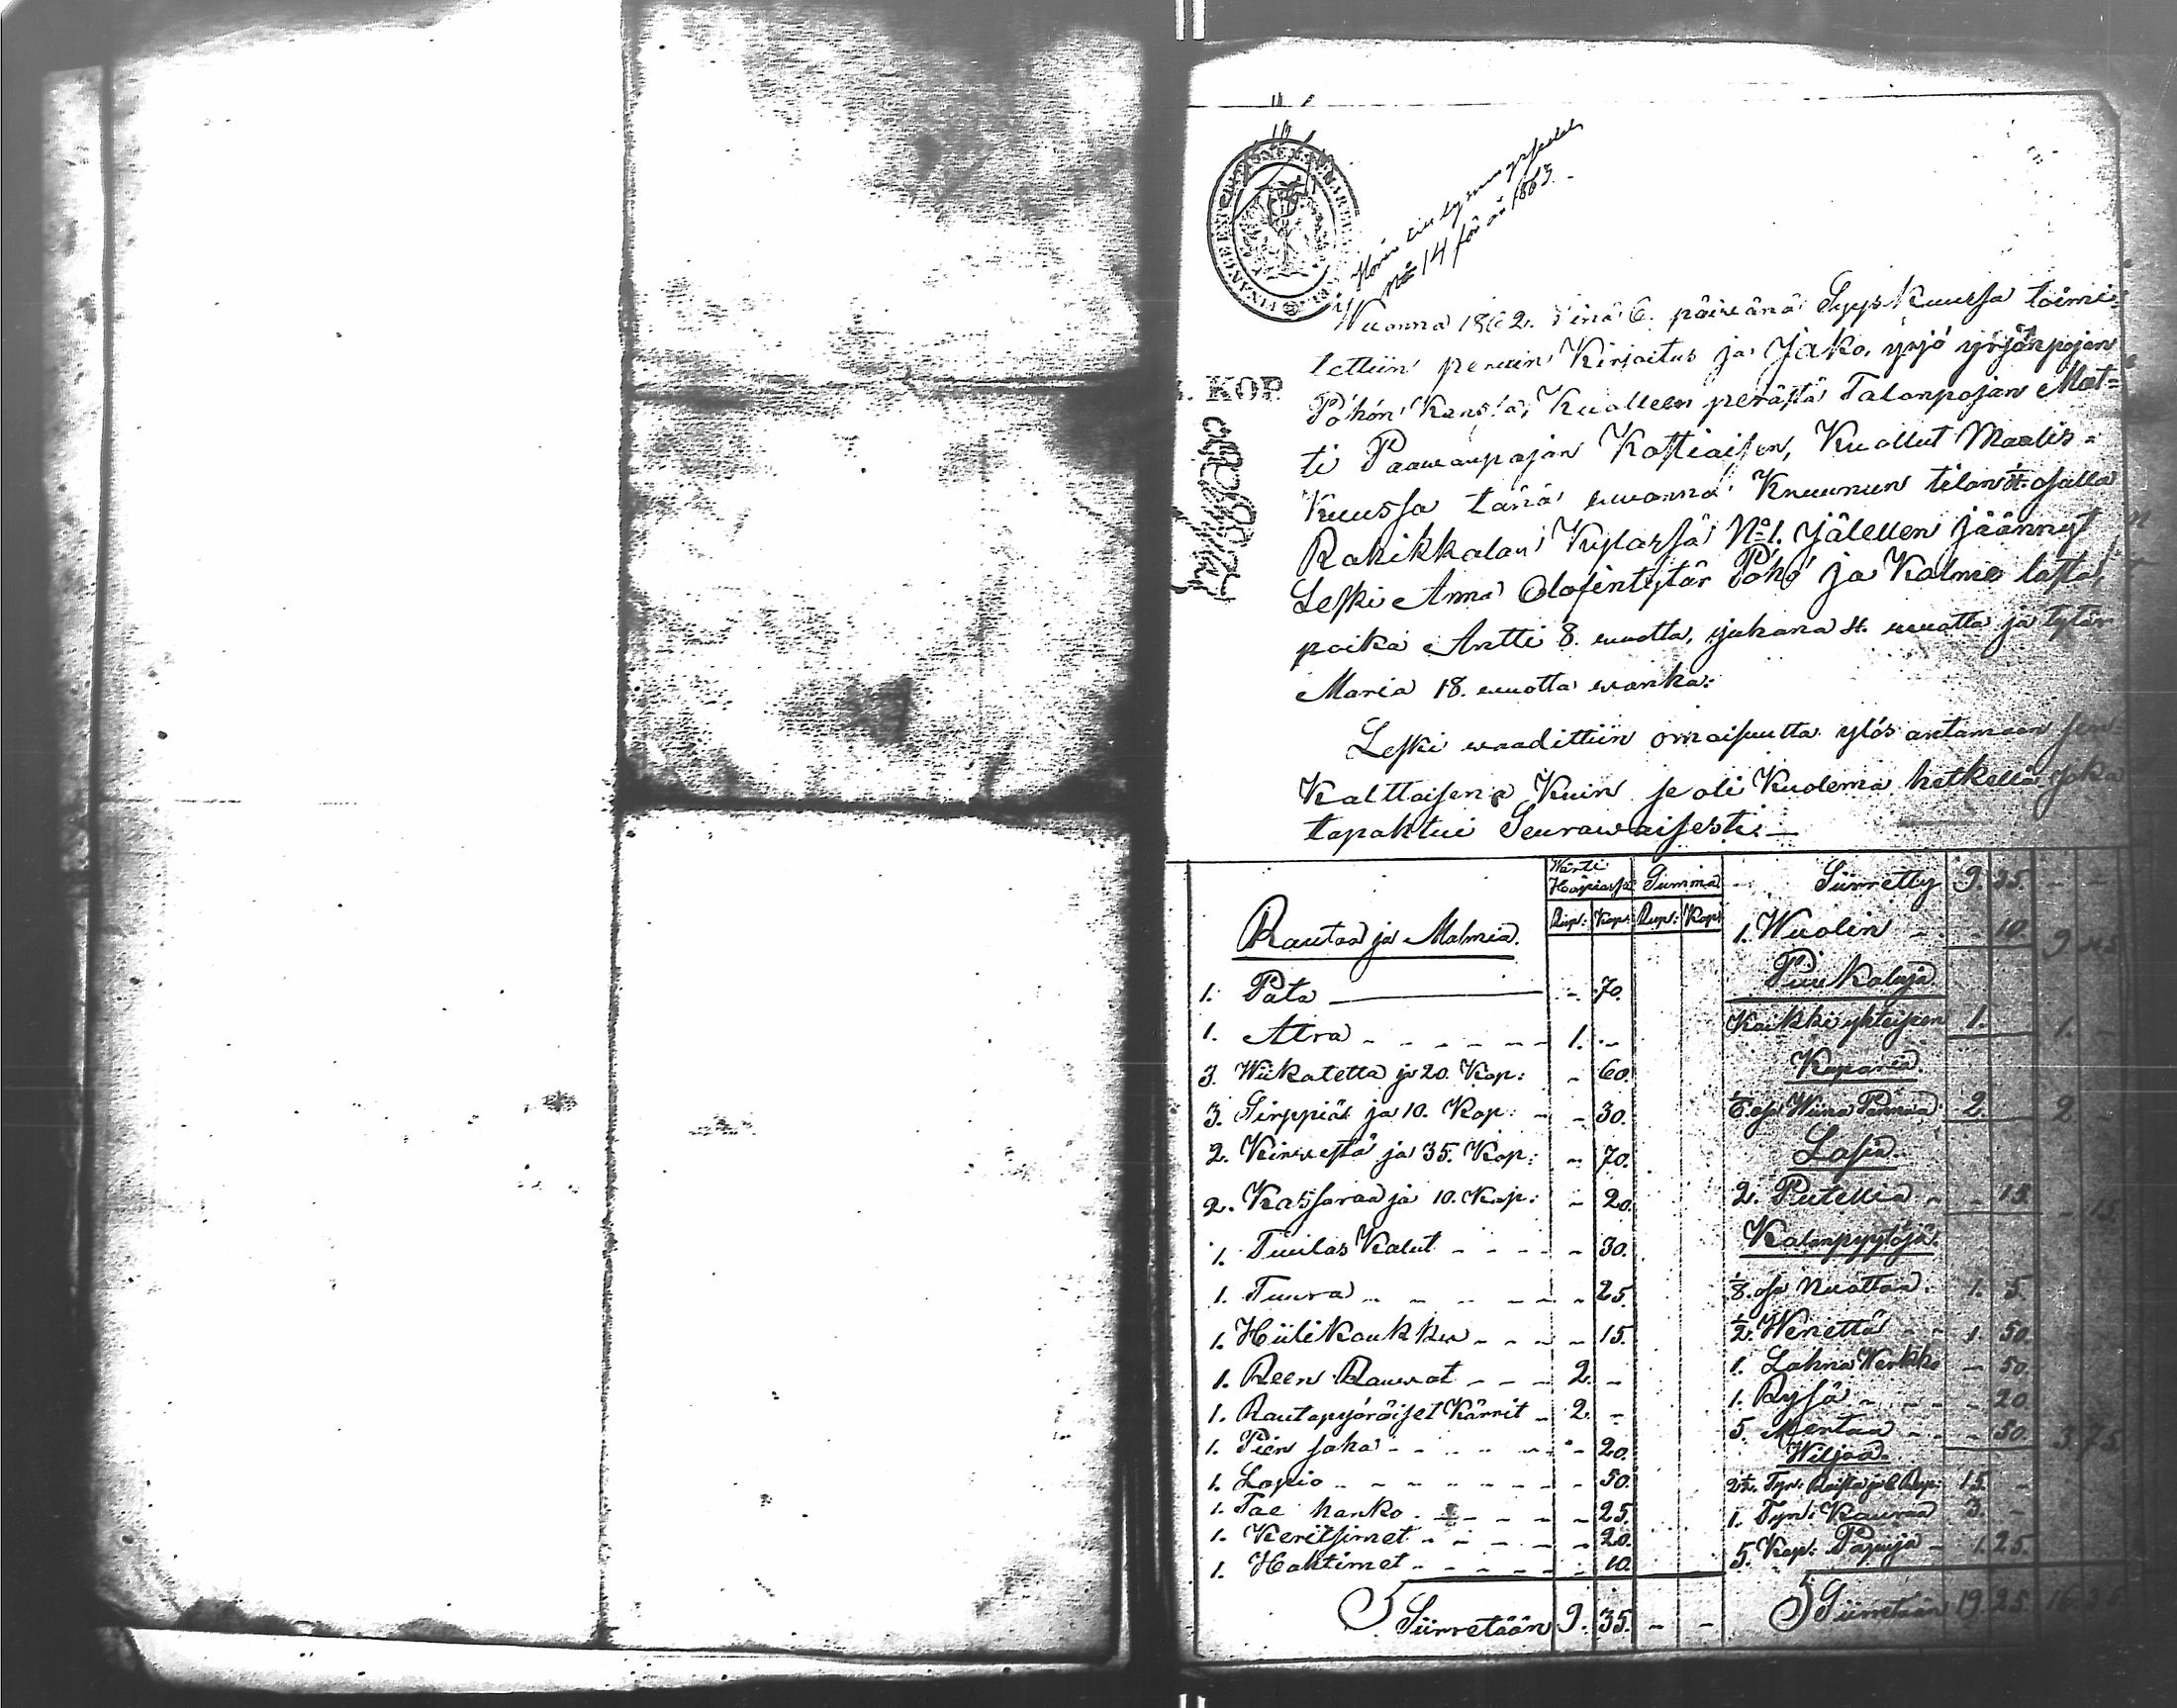 Hörer till
No 14 för år 1863.
KOP.
Wuonna 1862. sinä 6. päiwänä Syys Kuussa toimi=
tettiin perun Kirjoitus ja Jako, yrjö yrjönpojan
Pöhön Kanssa, Kuolleen perästä Talonpojan Mat=
ti Paawanpojan Kostiaisen, Kuollut Maalis=
Kuussa tänä wuonna Kruunun tilan osalla
Rahikkalan Kylässä No 1. Jälellen jäännyt
Leski Anna Olofintytär Pöhö ja Kolme lasta,
poika Antti 8. wuotta, juhana 4. wuotta ja tytär
Maria 18. wuotta wanha:
Leski waadittiin omaisuutta ylös antamaan sen
Kalttaisena Kuin se oli Kuoleman hetkellä joka
tapahtui Seurawaisesti:
Wärti Hopiassa Summa
Rup: Kop: Rup: Kop:
Rautaa ja Malmia.
1. Pata - 70.
1. Atra 1. -
3. Wiikatetta ja 20. Kop: - 60.
3. Sirppiä ja 10. Kop: - 30.
2. Kirwestä ja 35. Kop: - 70.
2. Kassaraa ja 10. Kop: - 20.
1. Tuulas Kalut - 30.
1. Tuura - 25.
1. Hiili Koukku - 15.
1. Reen Rauwat 2. -
1. Rautapyöräiset Kärrit 2. -
1. Pien saha - 20.
1. Lapio - 50.
1. Tae hanko - 25.
1. Keritsimet - 20.
1. Hohtimet - 10.
Siirretään 9. 35. - -
Siirretty 9. 35. - -
1. Wuolin - 10. 9 45
Puu Kaluja
Kaikki yhteisen 1. 1. -
Koparia.
1/6 osa Wiina Pannua 2. 2. -
Lasia.
2. Putellia - 15. - 15.
Kalanpyytöjä.
1/8 osa Nuottaa. 1. 5.
1/2 Wenettä 1. 50.
1. Lahna Werkko - 50.
1. Rysä - 20.
5. Mertaa - 50. 3 75.
Wiljaa.
2 1/2 Tyn: Ruista ja 6 Rup: 15. -
1. Tyn: Kauraa 3. -
5. Kap: Papuja 1. 25.
Siirretään 19. 25. 16 35